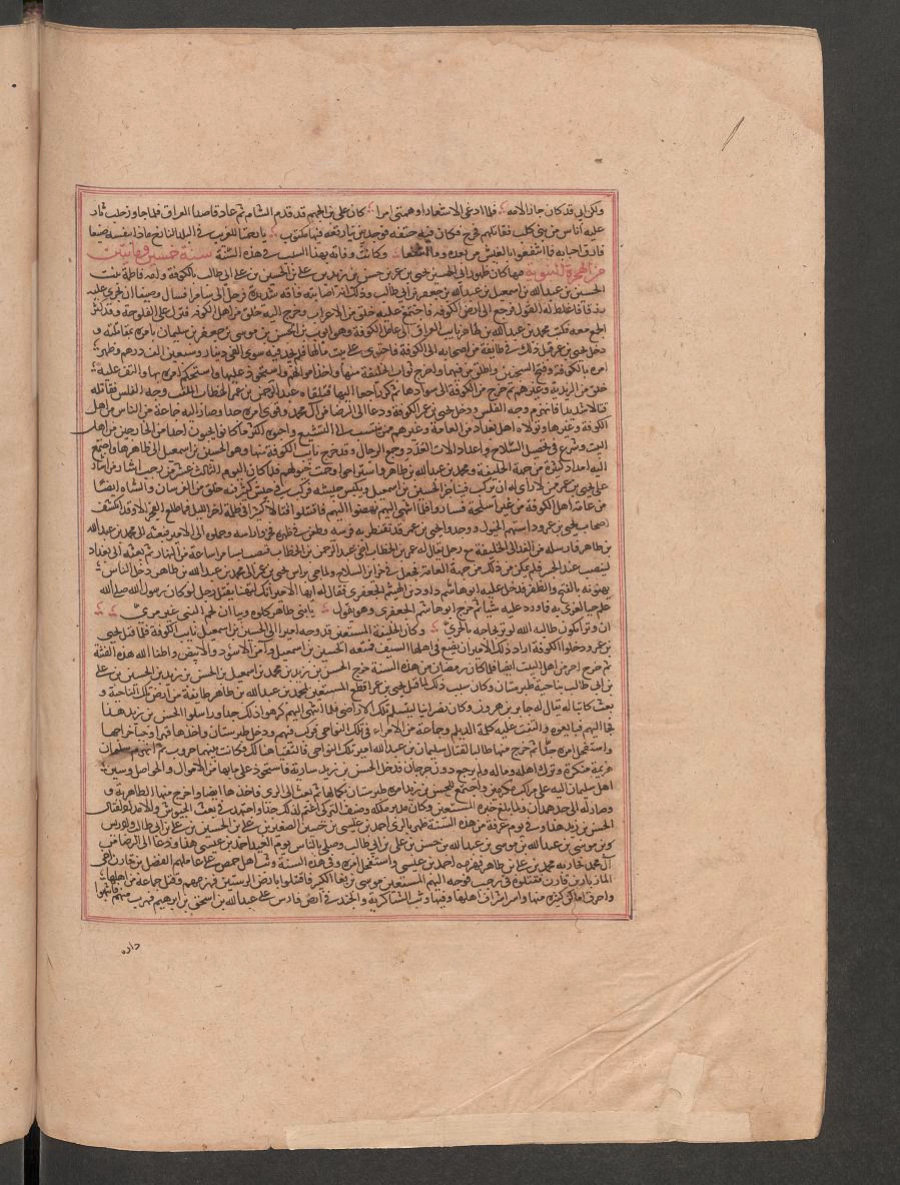 ولكن ابي قد كان جاز الامه فلما ادعى الاستعار او همتني امرا كان علي بن الجهم قد قدم الشام ثم عاد قاصدا العراق فلما جاوز حلب ثار
عليه اناس من بني كلب فقاتلهم فجرح فكان فيه حتفه فوجد بين ثيابه رقعة فيها مكتوب يا رحمتا للغريب في البلد النازح ماذا بنفسه صنعا
فارق احبابه فما انتفعوا بالعيش من بعده وما انتفعا وكانت وفاته بهذا السبب في هذه السنة سنة خمسين ومايتين
من الهجرة النبوية فيها كان ظهور ابي الحسين يحيى بن عمر بن يحيى بن حسين بن زيد بن علي بن الحسين بن علي بن ابي طالب بالكوفة وامه فاطمة بنت
الحسين بن عبد الله بن اسمعيل بن عبد الله بن جعفر بن ابي طالب وذلك انه اصابته فاقة شديدة فدخل الى سامرا فسال وصيفا ان يجري عليه
رزقا فاغلظ له القول فرجع الى ارض الكوفة فاجتمع عليه خلق من الاعراب وخرج اليه خلق من اهل الكوفة فنزل على الفلوجة وقد كثر
الجمع معه فكتب محمد بن عبد الله بن طاهر نايب العراق الى عامل الكوفة وهو ايوب بن الحسن بن موسى بن جعفر بن سليمان يامره بمقاتلته و
دخل يحيى بن عمر قبل ذلك في طايفة من اصحابه الى الكوفة فاحتوى على بيت مالها فلم يجد فيه سوى الفي دينار وسبعين الف درهم وظهر
امره بالكوفة وفتح السجنين واطلق من فيهما واخرج نواب الخليفة منها واخذ اموالهم واستحوذ عليها واستحكم امره بها والتف عليه
خلق من الزيدية وغيرهم ثم خرج من الكوفة الى سوادها ثم كر راجعا اليها فتلقاه عبد الرحمن بن الخطاب الملقب وجه الفلس فقاتله
قتالا شديدا فانهزم وجه الفلس ودخل يحيى بن عمر الكوفة ودعا الى الرضا من آل محمد وقوي امره جدا وصار اليه جماعة من الناس من اهل
الكوفة وغيرها وتولاه اهل بغداد من العامة وغيرهم ممن ينسب الى التشيع واحبوه اكثر ما كانوا يحبون احدا من الخارجين من اهل
البيت وشرع في تحصيل السلاح واعداد الات العدد وجمع الرجال وقد خرج نايب الكوفة منها وهو الحسين بن اسمعيل الى ظاهرها واجتمع
اليه امداد كثيرة من جهة الخليفة ومحمد بن عبد الله بن طاهر واستراحوا وجمت خيولهم فلما كان اليوم الثالث عشر من رجب اشار من اشار
على يحيى بن عمر ممن لا راي له ان يركب فيناجز الحسين بن اسمعيل ويكبس جيشه فركب في جيش كثير فيه خلق من الفرسان والمشاه ايضا
من عامة اهل الكوفة من غير اسلحة فساروا فلما انتهى اليهم نهضوا اليهم فاقتتلوا قتالا كثيرا في ظلمة اخر الليل فما طلع الفجر الا وقد انكشف
اصحاب يحيى بن عمر وداستهم الخيول ووجدوا يحيى بن عمر قد تقنطر به فرسه وطعن في ظهره فحزوا راسه وحملوه الى الامير فبعثه الى محمد بن عبد الله
بن طاهر فارسله من الغد الى الخليفة مع رجل يقال له عمر بن الخطاب اخي عبد الرحمن بن الخطاب فنصب بسامرا ساعة من النهار ثم بعثه الى بغداد
لينصب عند الجسر فلم يمكن من ذلك من جهة العامة فجعل في خزاين السلاح ولما جيء براس يحيى بن عمر الى محمد بن عبد الله بن طاهر دخل الناس
يهنونه بالفتح والظفر فدخل عليه ابو هاشم داود بن الهيثم الجعفري فقال له ايها الامير انك لتهنا بقتل رجل لو كان رسول الله صلى الله
عليه حيا لعزي به فما رد عليه شيئا ثم خرج ابو هاشم الجعفري وهو يقول يا بني طاهر كلوه وبيا ان لحم النبي غير مري
ان وترا يكون طالبه الله لوتر نجاحه بالحري وكان الخليفة المستعين قد وجه اميرا الى الحسين بن اسمعيل نايب الكوفة فلما قتل يحيى
بن عمر ودخلوا الكوفة اراد ذلك الامير ان يضع في اهلها السيف فمنعه الحسين بن اسمعيل وآمن الاسود والابيض واطفا الله هذه الفتنة
ثم خرج اخر من اهل البيت ايضا فلما كان رمضان من هذه السنة خرج الحسن بن زيد بن محمد بن اسمعيل بن الحسن بن زيد بن الحسين بن علي
بن ابي طالب بناحية طبرستان وكان سبب ذلك لما قتل يحيى بن عمر اقطع المستعين لمحمد بن عبد الله بن طاهر طايفة من ارض تلك الناحية و
بعث كاتبا له يقال له جابر بن هرون وكان نصرانيا ليتسلم تلك الاراضي فلما انتهى اليهم كرهوا ذلك جدا وراسلوا الحسن بن زيد هذا
فجا اليهم فبايعوه والتفت عليه كلمة الديلم وجماعة من الامراء في تلك النواحي فركب فيهم ودخل طبرستان واخذها قهرا وجبا خراجها
واستفحل امره جدا ثم خرج منها طالبا لقتال سليمان بن عبد الله امير تلك النواحي فالتقيا هنالك فكانت بينهما حروب ثم انهزم سليمان
هزيمة منكرة وترك اهله وماله ولم يرجع دون جرجان فدخل الحسن بن زيد سارية فاستحوذ على ما بها من الاموال والحواصل وسير
اهل سليمان اليه على مراكب مكرمين واجتمع للحسن بن زيد امر طبرستان بكمالها ثم بعث الى الري فاخذها ايضا واخرج منها الطاهرية و
وصار له الى حد همدان ولما بلغ خبره المستعين وكان مدبر ملكه وصيف التركي اغتم لذلك جدا واجتهد في بعث الجيوش والامداد لقتال
الحسن بن زيد هذا وفي يوم عرفة من هذه السنة ظهر بالري احمد بن عيسى بن حسين الصغير بن علي بن الحسين بن علي بن ابي طالب وادريس
وبن موسى بن عبد الله بن موسى بن عبد الله بن حسن بن علي بن ابي طالب وصلى بالناس يوم العيد احمد بن عيسى هذا ودعا الى الرضا من
آل محمد فحاربه محمد بن علي بن طاهر فهزمه احمد بن عيسى واستفحل امره وفي هذه السنة وثب اهل حمص على عاملهم الفضل بن قارن اخي
المازيار بن قارن فقتلوه في رجب فوجه اليهم المستعين موسى بن بغا الكبير فاقتتلوا بارض الرستن فهزمهم وقتل جماعة من اهلها
واحرق اماكن كثيرة منها واسر اشراف اهلها وفيها وثب الشاكرية والجند في ارض فارس على عبد الله بن اسحق بن ابرهيم فهرب منهم فانتهبوا
داره